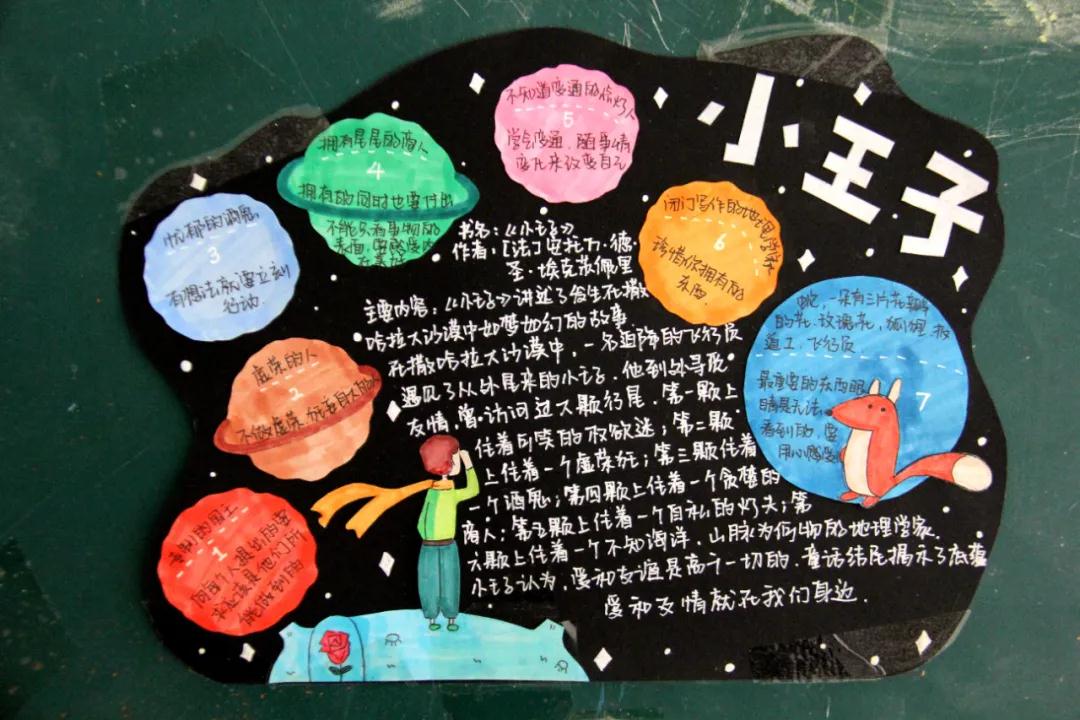 小王子
不知道变通的点灯人
5
学会变通，随事情
变化来改变自己
拥有星星的商人
4
拥有的同时也要付出
不能只看事物的
表面，要感受内
在美好
闭门写作的地理学家
6
珍惜你拥有的
东西
忧郁的酒鬼
3
有想法就要立刻
行动
虚荣的人
2
不做虚荣
专制的国王
1
向每个人提出的要
求应该是他们所
能做到的
书名：《小王子》
作者：[法]安托万·德·
圣·埃克苏佩里
主要内容：《小王子》讲述了发生在撒
哈拉大沙漠中如梦如幻的故事
在撒哈拉大沙漠中，一名迫降的飞行员
遇见了从外星来的小王子，他到外寻找
友情，曾访问过六颗行星，第一颗上
住着可笑的权欲迷；第二颗
上住着一个虚荣狂；第三颗住着
一个酒鬼；第四颗上住着一个贪婪的
商人；第五颗上住着一个自私的灯夫；第
六颗上住着一个不知海洋，山脉为何物的地理学家.
小王子认为，爱和友谊是高于一切的.童话结尾揭示了底蕴
爱和友情就在我们身边.
蛇，一朵有三片花瓣
的花，玫瑰花，狐狸，扳
道工，飞行员
7
最重要的东西眼
睛是无法
看到的，要
用心感受